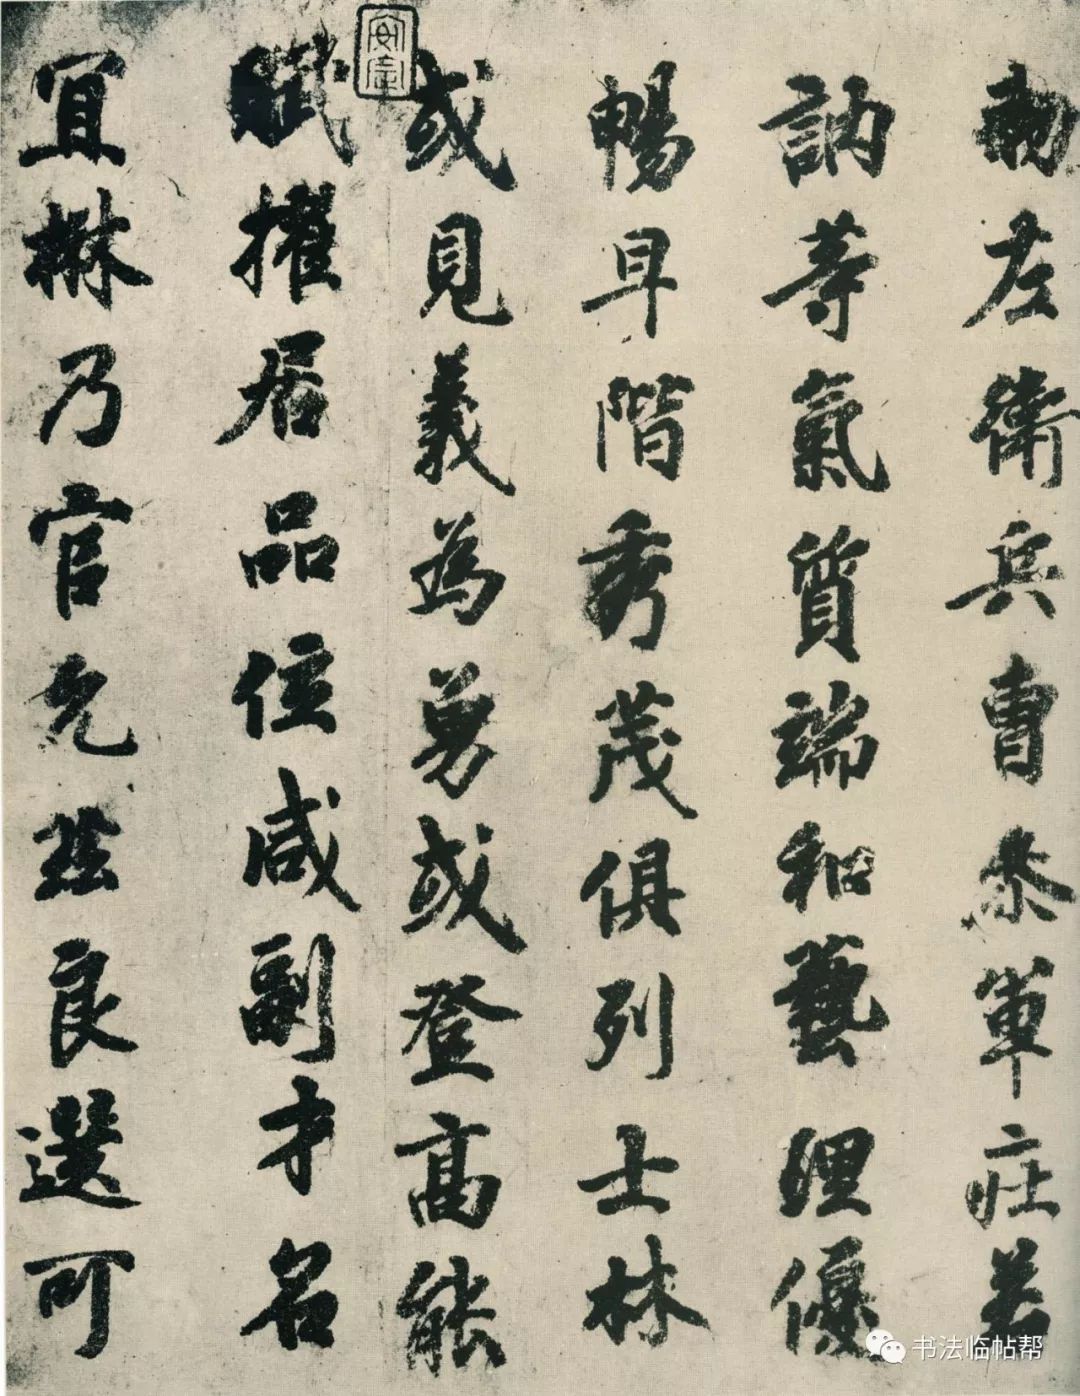 勅左衛兵曹叅軍庄若
訥等氣質端和藝理優
暢早階秀茂俱列士林
或見義為勇或登高能
賦擢居品位咸副才名
宜楙乃官允茲良選可
书法临帖帮